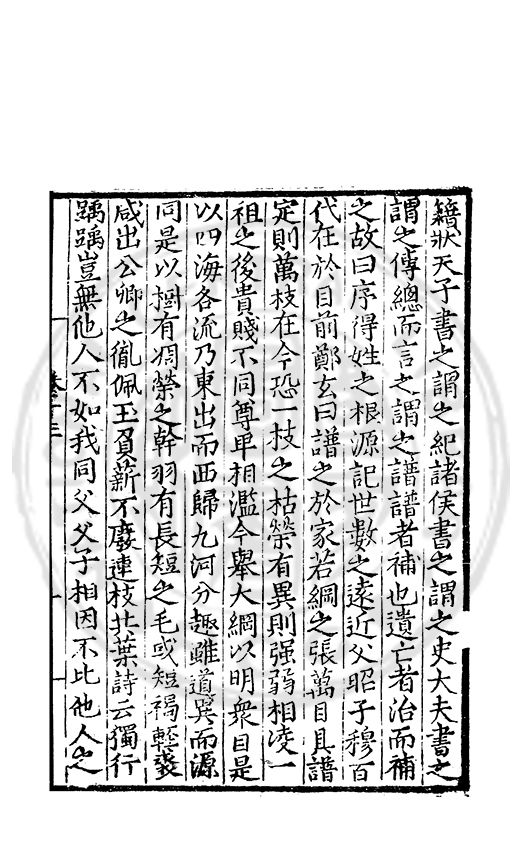 籍狀天子書之謂之紀諸侯書之謂之史大夫書之
謂之傳總而言之謂之譜譜者補也遺亡者治而補
之故曰序得姓之根源記世數之遠近父昭子穆百
代在於目前鄭玄曰譜之於家若綱之張萬目具譜
定則萬枝在今恐一枝之枯榮有異則强弱相凌一
祖之後貴賤不同尊卑相濫今舉大綱以明衆目是
以四海各流乃東出而西歸九河分趣雖道異而源
同是以樹有凋榮之幹羽有長短之毛或短褐輕裘
咸出公卿之胤佩玉負薪不廢連枝共葉詩云獨行
踽踽豈無他人不如我同父父子相因不比他人之